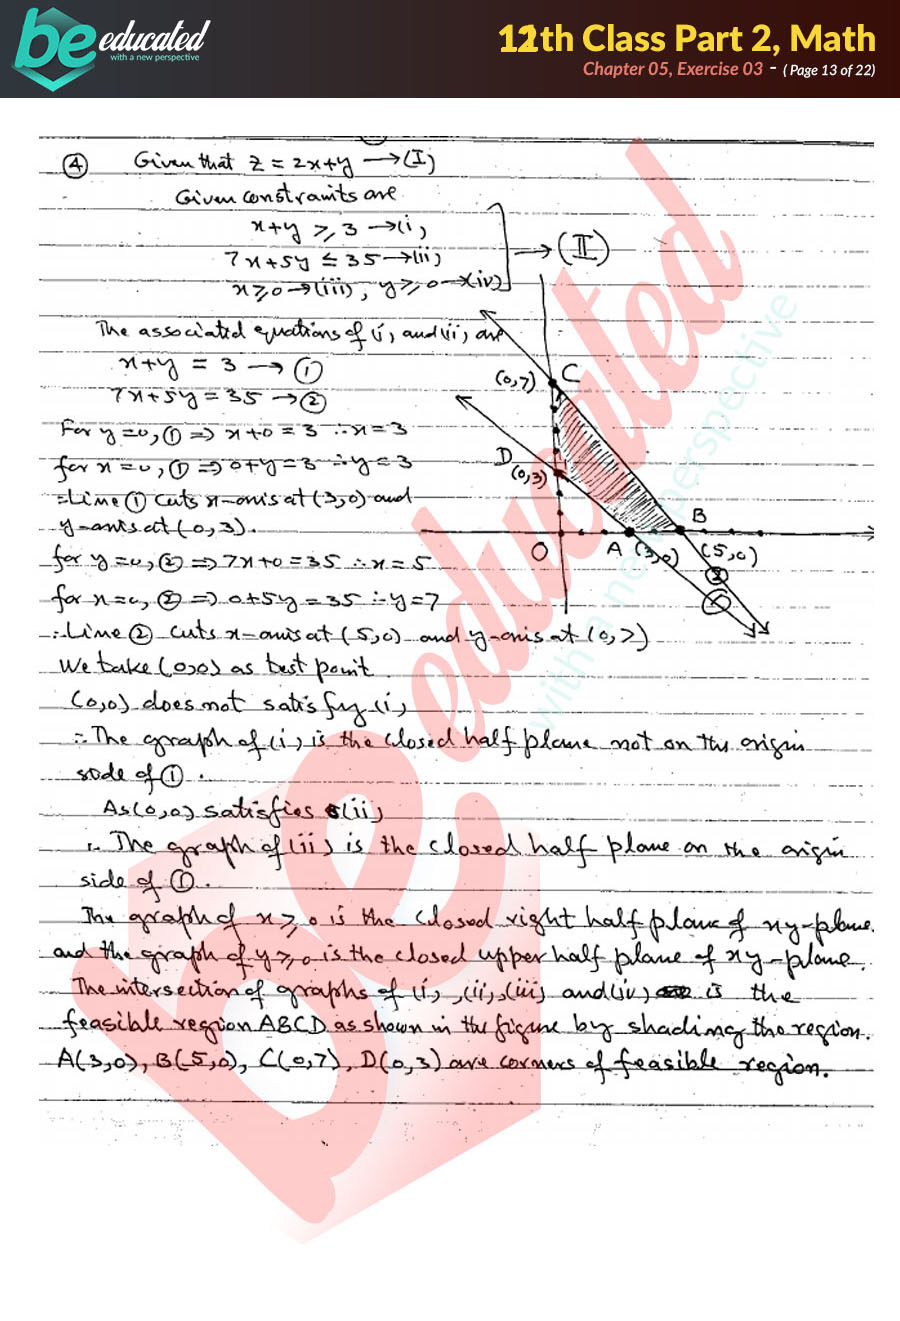 be educated
with a new perspective
12th Class Part 2, Math
Chapter 05, Exercise 03 - ( Page 13 of 22)
④ Given that z = 2x+y ⟶(I)
Given constraints are
x+y ⩾ 3 →(i)
7x+5y ≤ 35 →(ii)
x⩾0 →(iii), y⩾0 →(iv)
→ (II)
The associated equations of (i) and (ii) are
x+y = 3 → ①
7x+5y = 35 → ②
For y=0, ① ⇒ x+0 = 3 ∴ x=3
for x=0, ① ⇒ 0+y=3 ∴ y=3
∴ Line ① cuts x-axis at (3,0) and
y-axis at (0,3).
for y=0, ② ⇒ 7x+0=35 ∴ x=5
for x=0, ② ⇒ 0+5y=35 ∴ y=7
∴ Line ② cuts x-axis at (5,0) and y-axis at (0,7)
We take (0,0) as test point
(0,0) does not satisfy (i)
∴ The graph of (i) is the closed half plane not on the origin
side of ①.
As (0,0) satisfies (ii)
∴ The graph of (ii) is the closed half plane on the origin
side of ①.
The graph of x⩾0 is the closed right half plane of xy-plane.
and the graph of y⩾0 is the closed upper half plane of xy-plane.
The intersection of graphs of (i), (ii), (iii) and (iv) is the
feasible region ABCD as shown in the figure by shading the region.
A(3,0), B(5,0), C(0,7), D(0,3) are corners of feasible region.
(0,7) C
D (0,3)
B
O A (3,0) (5,0)
②
①
be educated
with a new perspective